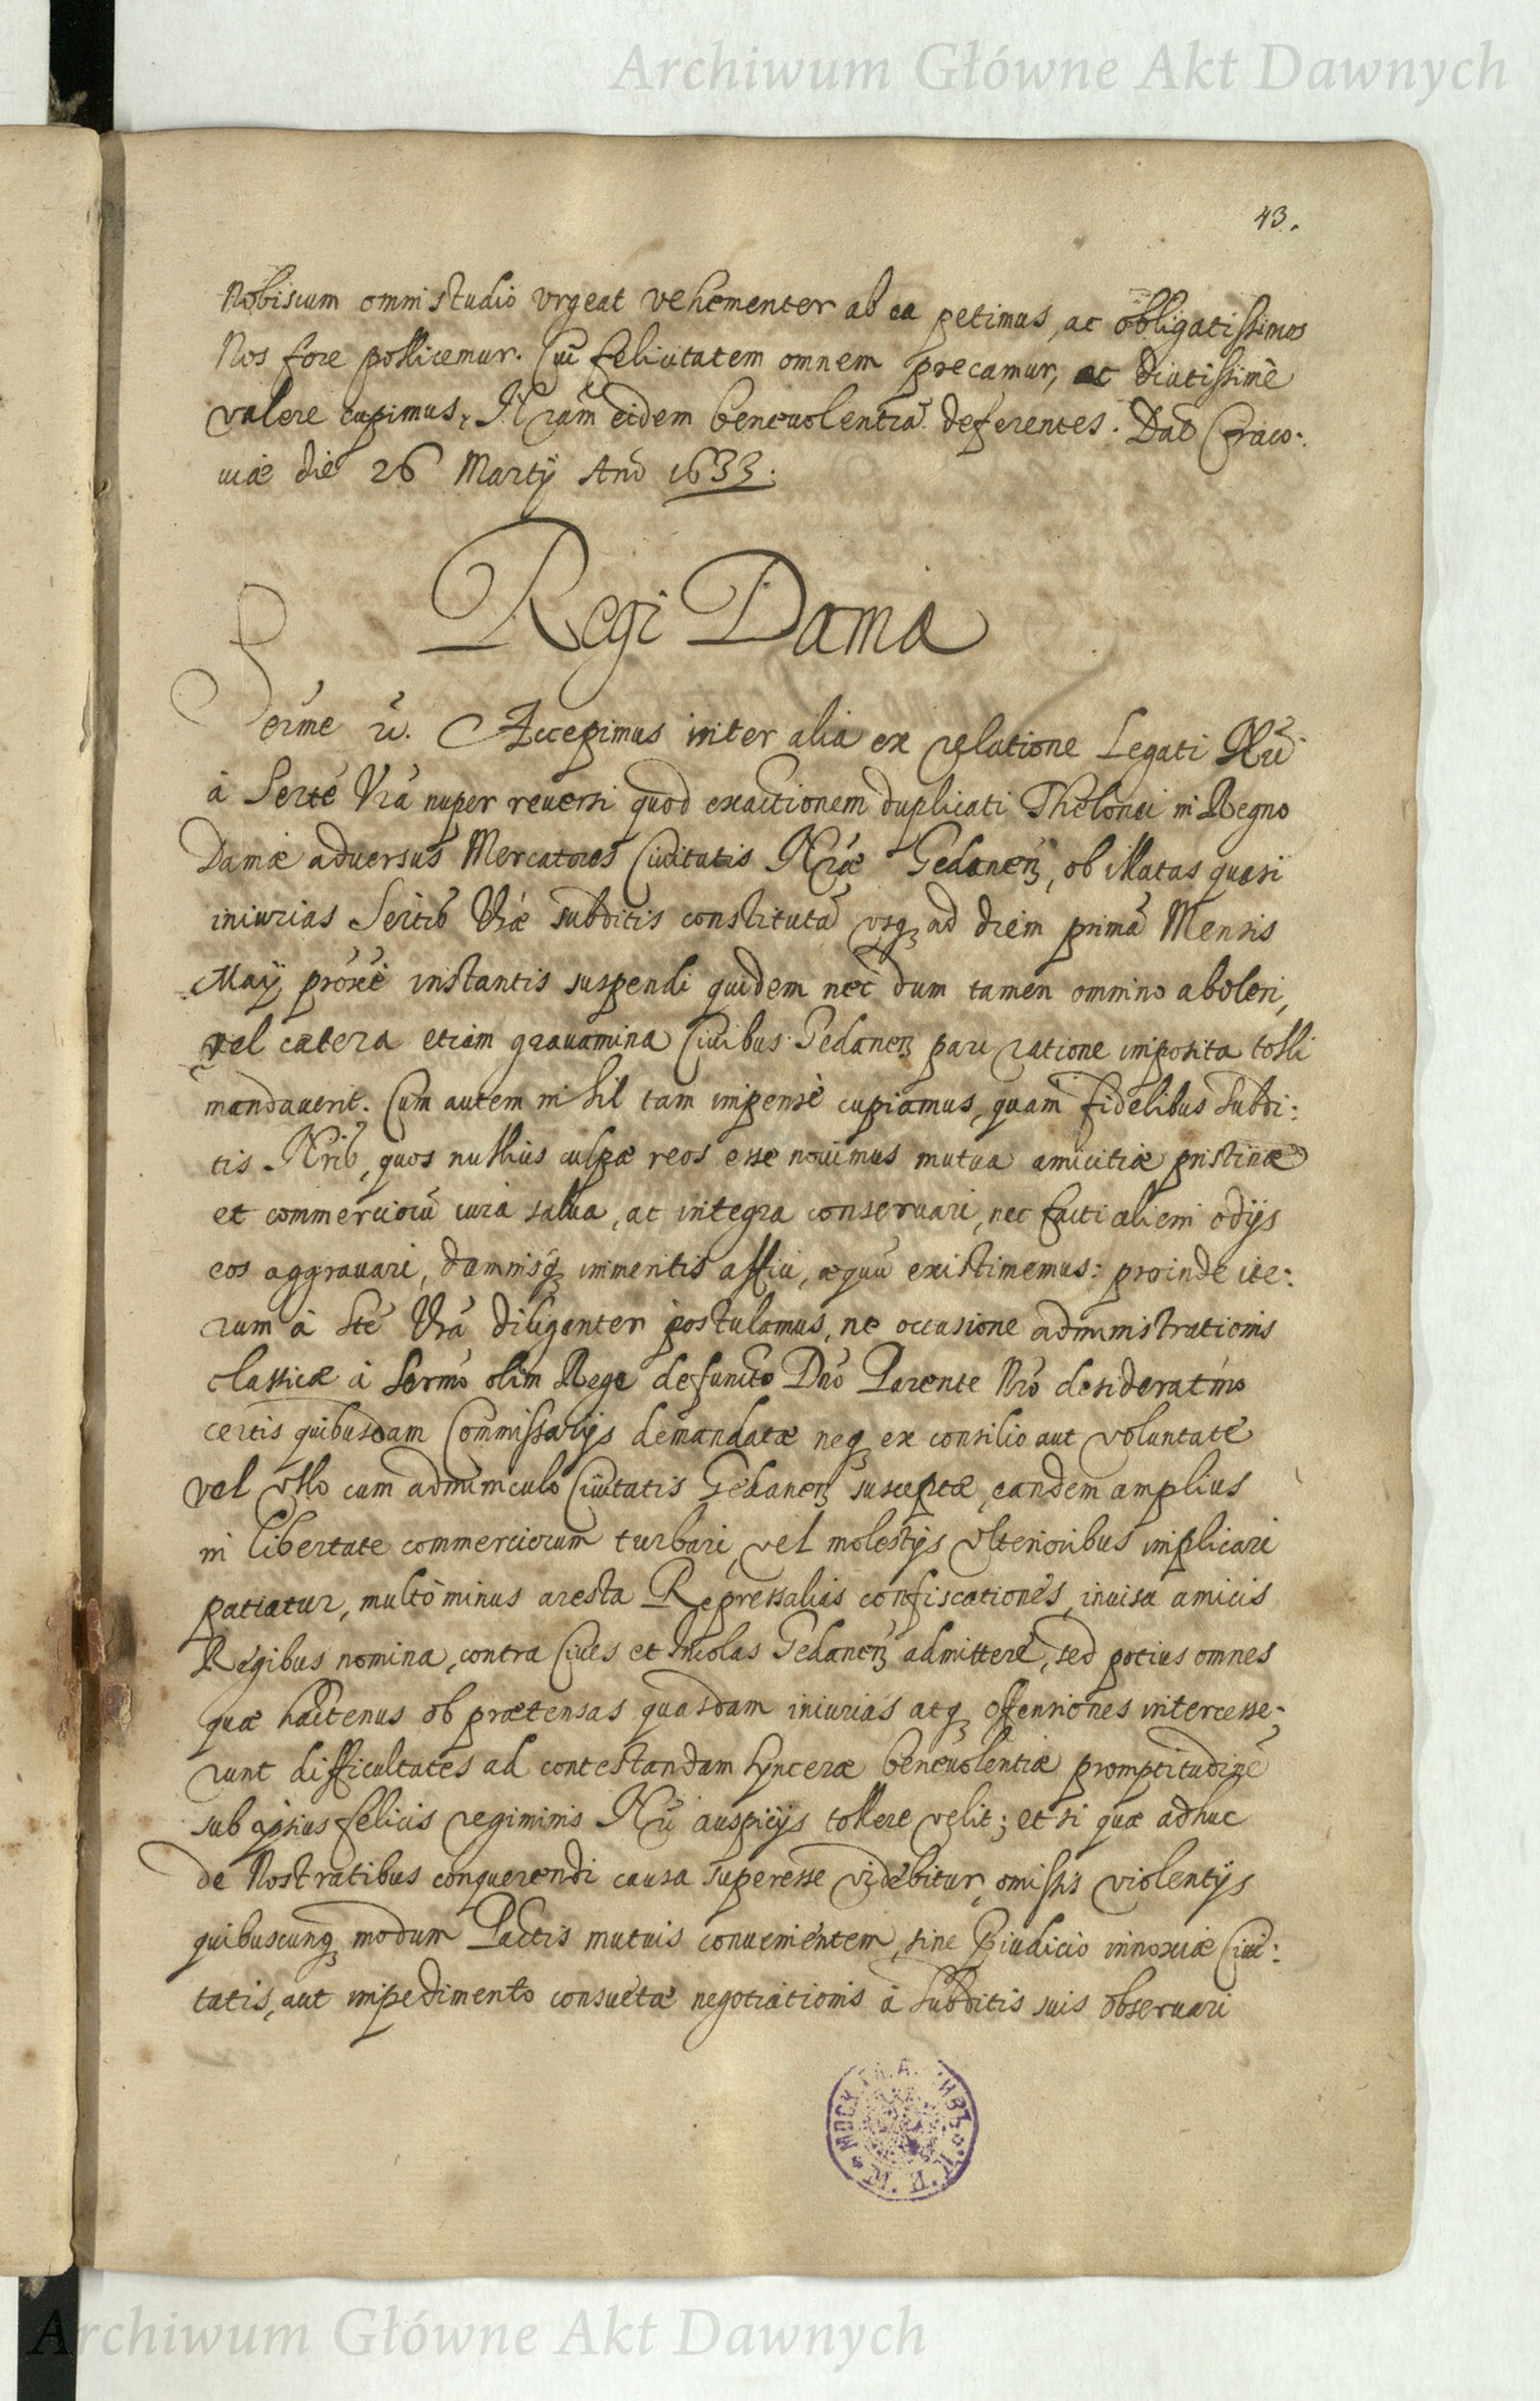 Archiwum Główne Akt Dawnych
43.
Nobiscum omni studio vrgeat vehementer ab ea petimus, ac obligatissimos
Nos fore pollicemur. Cui felicitatem omnem precamur, ac diutissimè
valere cupimus, Nram eidem beneuolentiã deferentes. Dat Craco-
uiæ die 26 Martij Año 1633.
Regi Daniæ
Serme Accepimus inter alia ex relatione Legati Nri
à Serte Vra nuper reuersi quod exactionem duplicati Thelonei in Regno
Daniæ aduersus Mercatores Ciuitatis Nræ Gedanen, ob illatas quasi
iniurias Sertis Vræ subditis constitutã vsq ad diem primã Mensis
Maij proxè instantis suspendi quidem nec dum tamen omnino aboleri,
vel cætera etiam grauamina Ciuibus Gedanen pari ratione imposita tolli
mandauerit. Cum autem nihil tam impensè cupiamus, quam fidelibus subdi:
tis Nris, quos nullius culpæ reos esse nouimus mutua amicitiæ pristinæ
et commerciorũ iura salua, ac integra conseruari, nec facti alieni odijs
eos aggrauari, damnisq immeritis affici, æquũ existimemus: proinde ite:
rum à Ste Vra diligenter postulamus, ne occasione administrationis
classicæ à Sermo olim Rege defuncto Dno Parente Nro desideratmo
certis quibusdam Commissarijs demandatæ neq ex consilio aut voluntate
vel vllo cum adminiculo Ciuitatis Gedanen susceptæ, eandem amplius
in libertate commerciorum turbari, vel molestijs vlterioribus implicari
patiatur, multò minus aresta Repressalias confiscationes, inuisa amicis
Regibus nomina, contra Ciues et Incolas Gedanen admittere, sed potius omnes
quæ hactenus ob prætensas quasdam iniurias atq offensiones intercesse:
runt difficultates ad contestandam synceræ beneuolentiæ promptitudinẽ
sub ipsius felicis regiminis Nri auspicijs tollere velit; et si quæ adhuc
de Nostratibus conquerendi causa superesse videbitur, omissis violentijs
quibuscunq modum Pactis mutuis conuenientem, sine Piudicio innoxiæ Ciui:
tatis, aut impedimento consuetæ negotiationis à subditis suis obseruari
Archiwum Główne Akt Dawnych